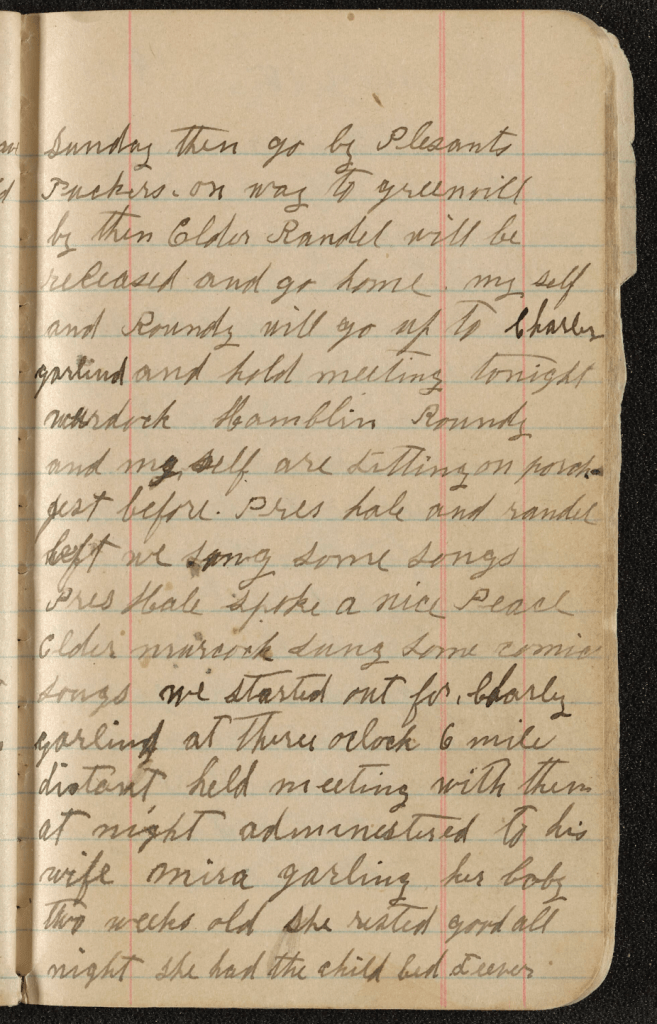 Sunday then go by Plesants
Tuckers. on way to greenvill
by then Elder Randel will be
released and go home. my self
and Roundy will go up to Charley
garlind and hold meeting tonight
murdock Hamblin Roundy
and my self are sitting on porch
jest before. Pres hale and randel
left we sang some songs
Pres Hale spoke a nice Peace
Elder murdock sung some comic
songs we started out for Charley
garlind at three oclock 6 mile
distant held meeting with them
at night administered to his
wife mira garling her baby
two weeks old she rested good all
night she had the child bed feever